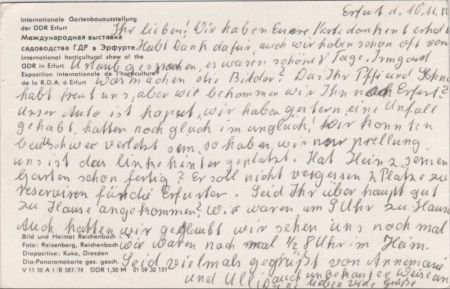 Internationale Gartenbauausstellung
der DDR Erfurt
Международная выставка
садоводства ГДР в Эрфурте
International horticultural show of the
GDR in Erfurt
Exposition internationale de l'horticulture
de la R.D.A. à Erfurt
Erfurt d. 10.11.
Ihr Lieben! Wir haben Euere Karte dankent erhalt
Habt Dank dafür, auch wir haben schon oft von
Urlaub gesprochen, es waren schöne Tage, Irmgard
Was machen die Bilder? Das Ihr
habt freut uns, aber wie bekommen wir Ihn nach Erfurt?
Unser Auto ist kaputt, wir haben gestern eine Unfall
gehabt, hatten noch glück im unglück! Wir konnten
bedschwer verletzt sein, so haben wir nur prellung
uns ist das linke hinter geplatzt. Hat Heinz seinen
Garten schon fertig? Er soll nicht vergessen 2 Plätze zu
reservieren für die Erfurter. Seid Ihr überhaupt gut
zu Hause angekommen? Wir waren um 9 Uhr zu Hause
Auch hatten wir geglaubt wir sehen uns noch mal
wir waren noch mal ½8 Uhr im Heim.
Seid vielmals gegrüßt von Annemarie
und Ulli auch unbekanter Weise an
Deine lieben viele Grüße
Bild und Heimat Reichenbach i. V.
Foto: Reisenberg, Reichenbach
Diapositive: Kuka, Dresden
Dia-Panoramakarte ges. gesch.
V 11 50 A 1/B 587/79 DDR 1,50 M 01 09 32 151